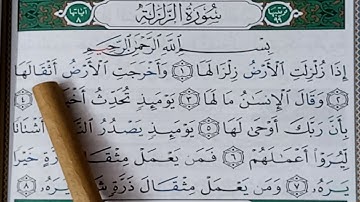 ترتيبها ٩٩ سُورَةُ الزَّلْزَلَةِ آياتها ٨
بِسْمِ اللَّهِ الرَّحْمَٰنِ الرَّحِيمِ
إِذَا زُلْزِلَتِ الْأَرْضُ زِلْزَالَهَا ١ وَأَخْرَجَتِ الْأَرْضُ أَثْقَالَهَا
٢ وَقَالَ الْإِنسَانُ مَا لَهَا ٣ يَوْمَئِذٍ تُحَدِّثُ
بِأَنَّ رَبَّكَ أَوْحَىٰ لَهَا ٥ يَوْمَئِذٍ يَصْدُرُ أَشْتَاتًا
لِّيُرَوْا أَعْمَالَهُمْ ٦ فَمَن يَعْمَلْ مِثْقَالَ ذَرَّةٍ خَيْرًا
يَرَهُ ٧ وَمَن يَعْمَلْ مِثْقَالَ ذَرَّةٍ يَرَهُ ٨